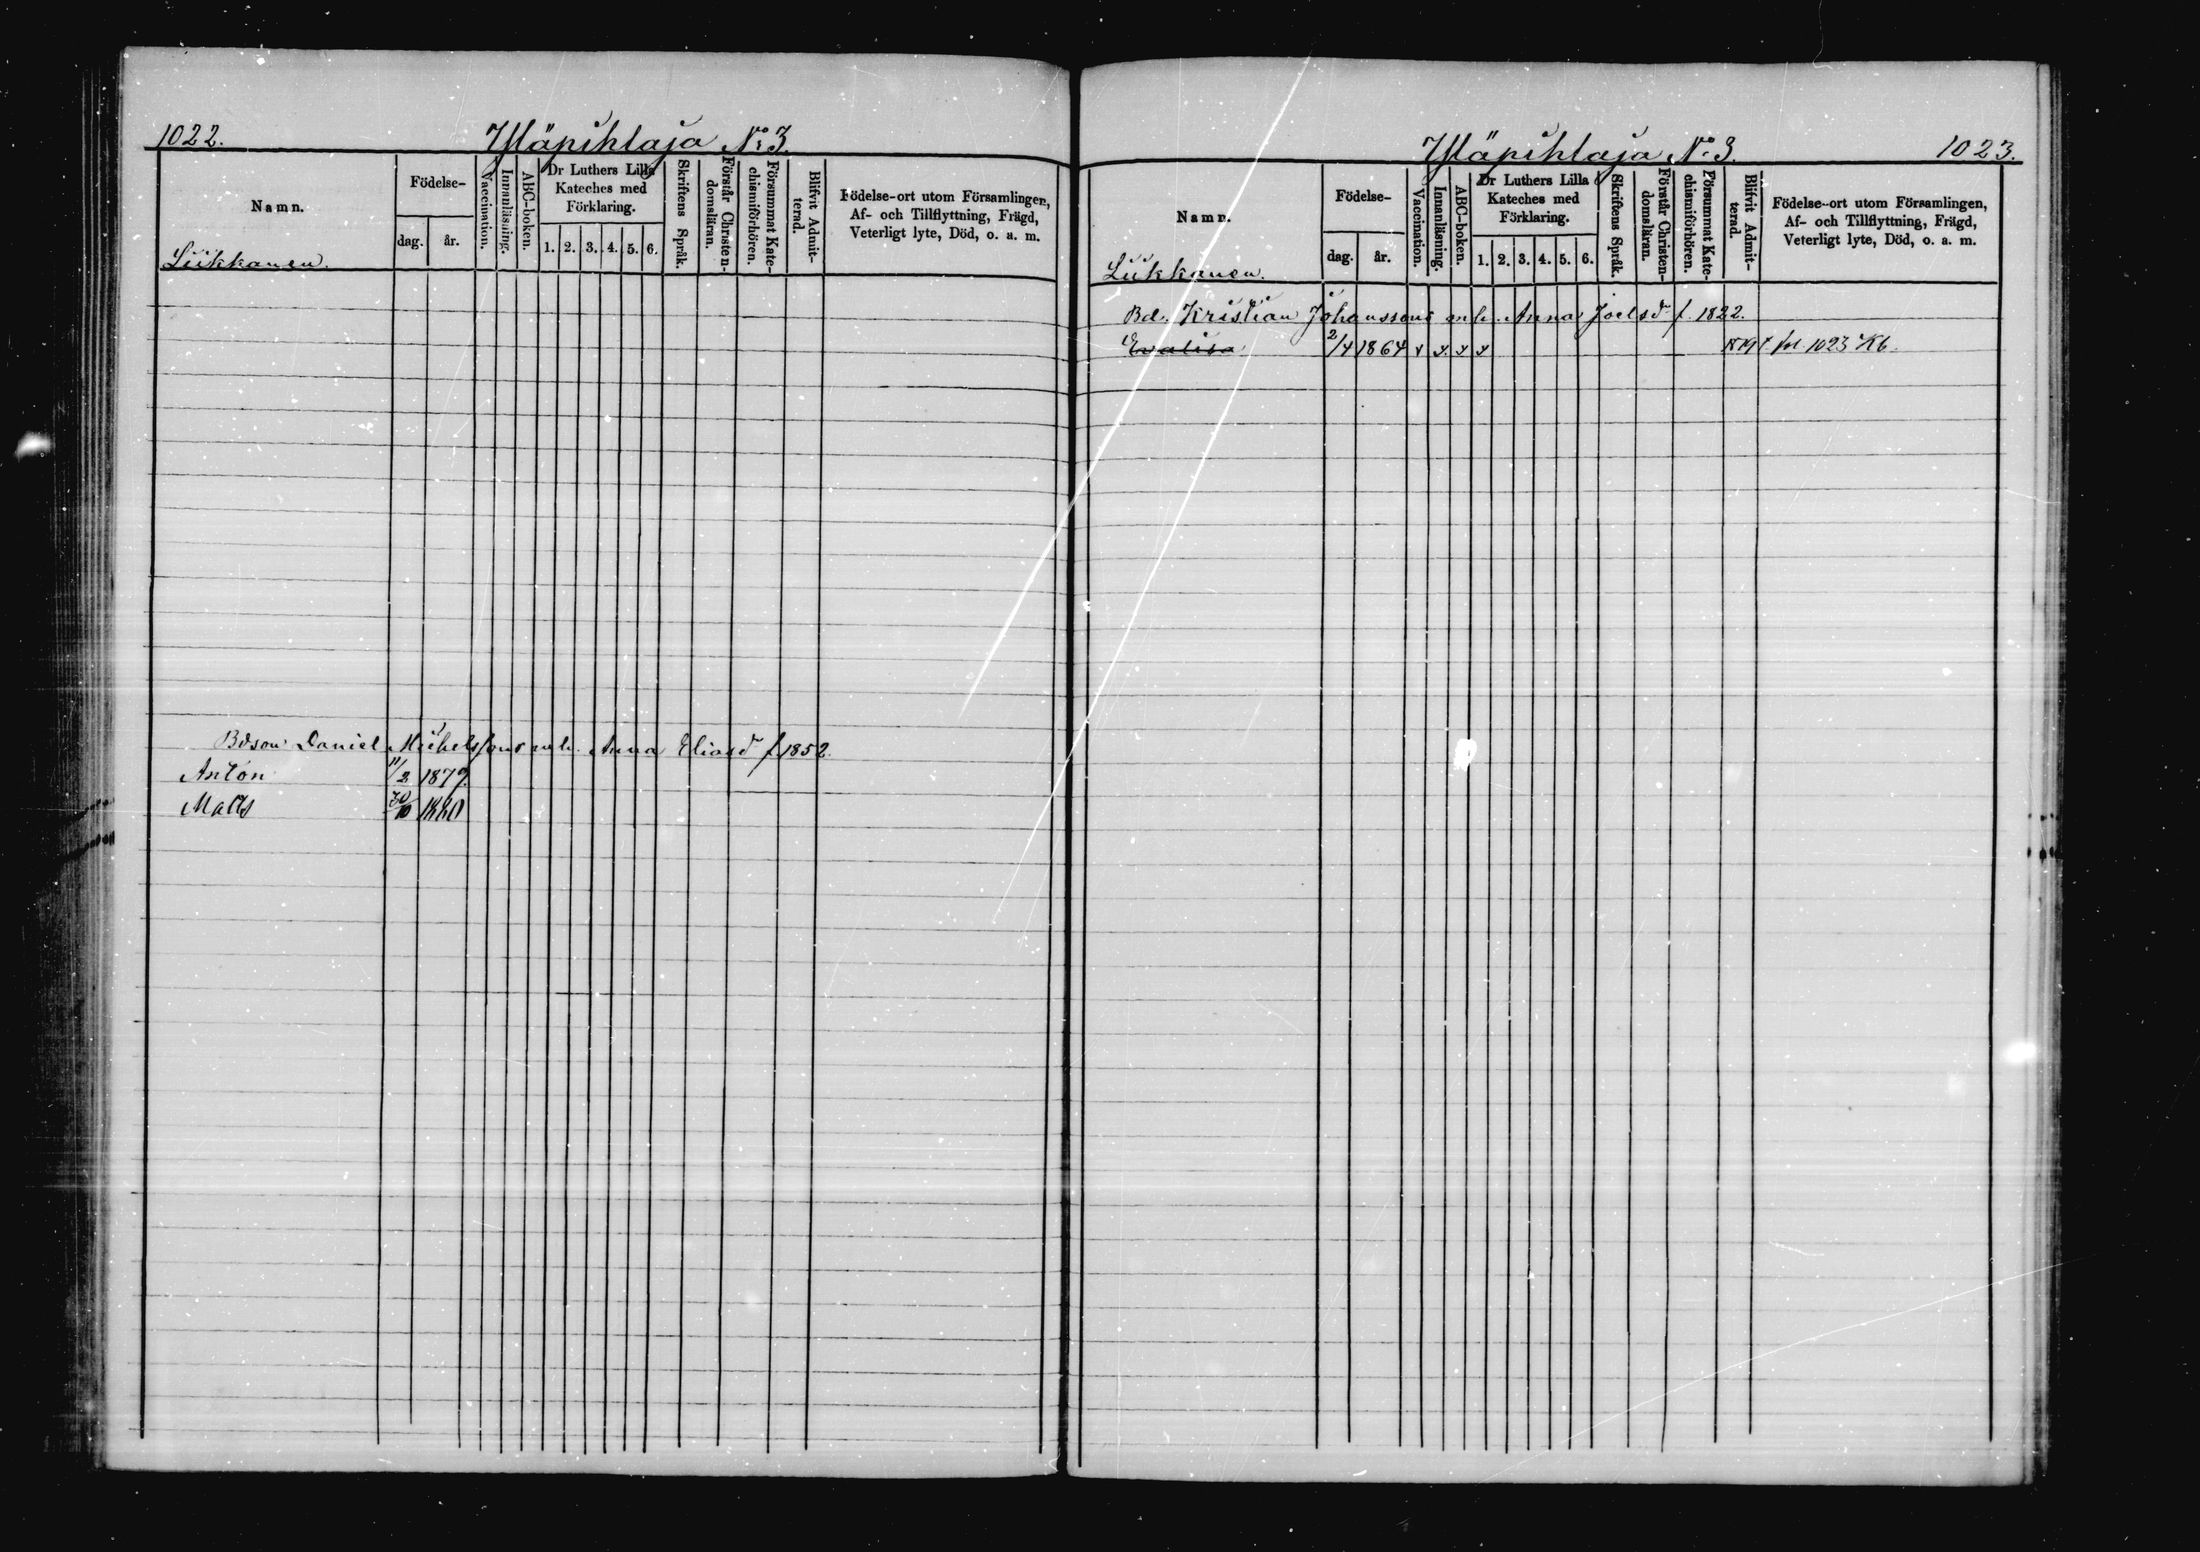 1022. Yläpihlaja No 3.
Namn.
Födelse-
dag.
år.
Vaccination.
Innanläsning.
ABC-boken.
Dr Luthers Lilla
Kateches med
Förklaring.
1. 2. 3. 4. 5. 6.
Skriftens Språk.
Förstår Christen-
domsläran.
Försummat Kate-
chismiförhören.
Blifvit Admit-
terad.
Födelse-ort utom Församlingen,
Af- och Tillflyttning, Frägd,
Veterligt lyte, Död, o. a. m.
Liikkanen.
Bdson Daniel Michelssons mh. Anna Eliasd f. 1852.
Anton 11/2 1879.
Matts 30/10 1880
Yläpihlaja No 3. 1023.
Namn.
Födelse-
dag.
år.
Vaccination.
Innanläsning.
ABC-boken.
Dr Luthers Lilla
Kateches med
Förklaring.
1. 2. 3. 4. 5. 6.
Skriftens Språk.
Förstår Christen-
domsläran.
Försummat Kate-
chismiförhören.
Blifvit Admit-
terad.
Födelse-ort utom Församlingen,
Af- och Tillflyttning, Frägd,
Veterligt lyte, Död, o. a. m.
Liikkanen.
Bd. Kristian Johanssons mh. Anna Joelsd f. 1822.
Evalisa 2/4 1864 x x x x 1879 t. fol 1023 Kb.